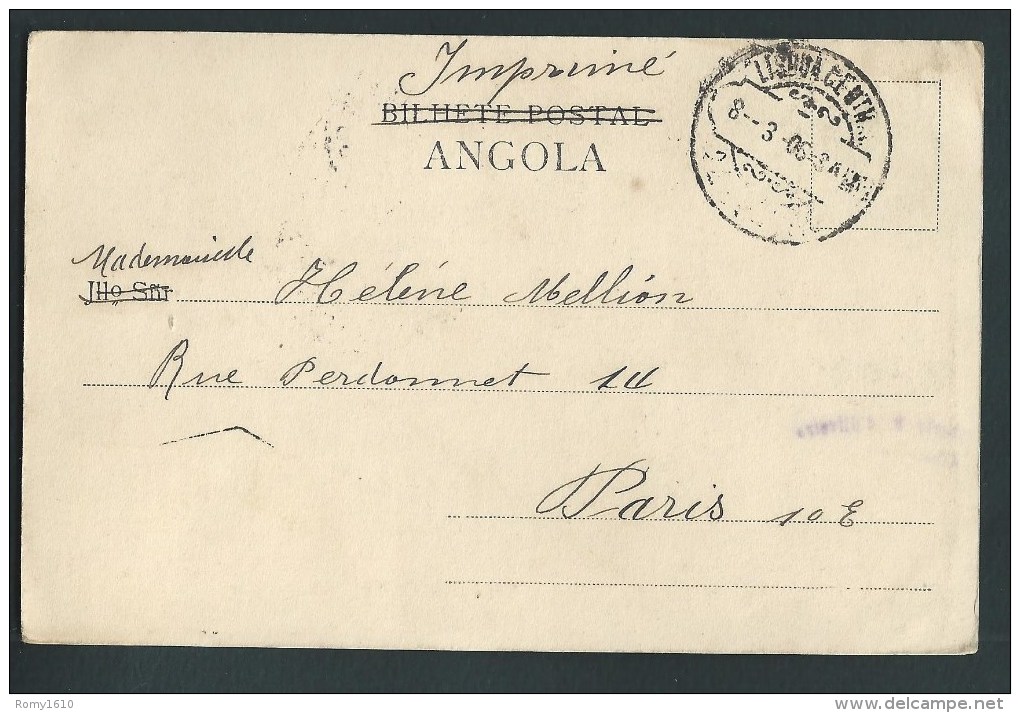 Imprimé
BILHETE POSTAL
ANGOLA
LISBOA CENTRAL
8--3-06-3
Mademoiselle
Illo Snr
Héléné Mellión
Rue Perdonnet 14
Paris 10E
Romy1610
www.delcampe.net